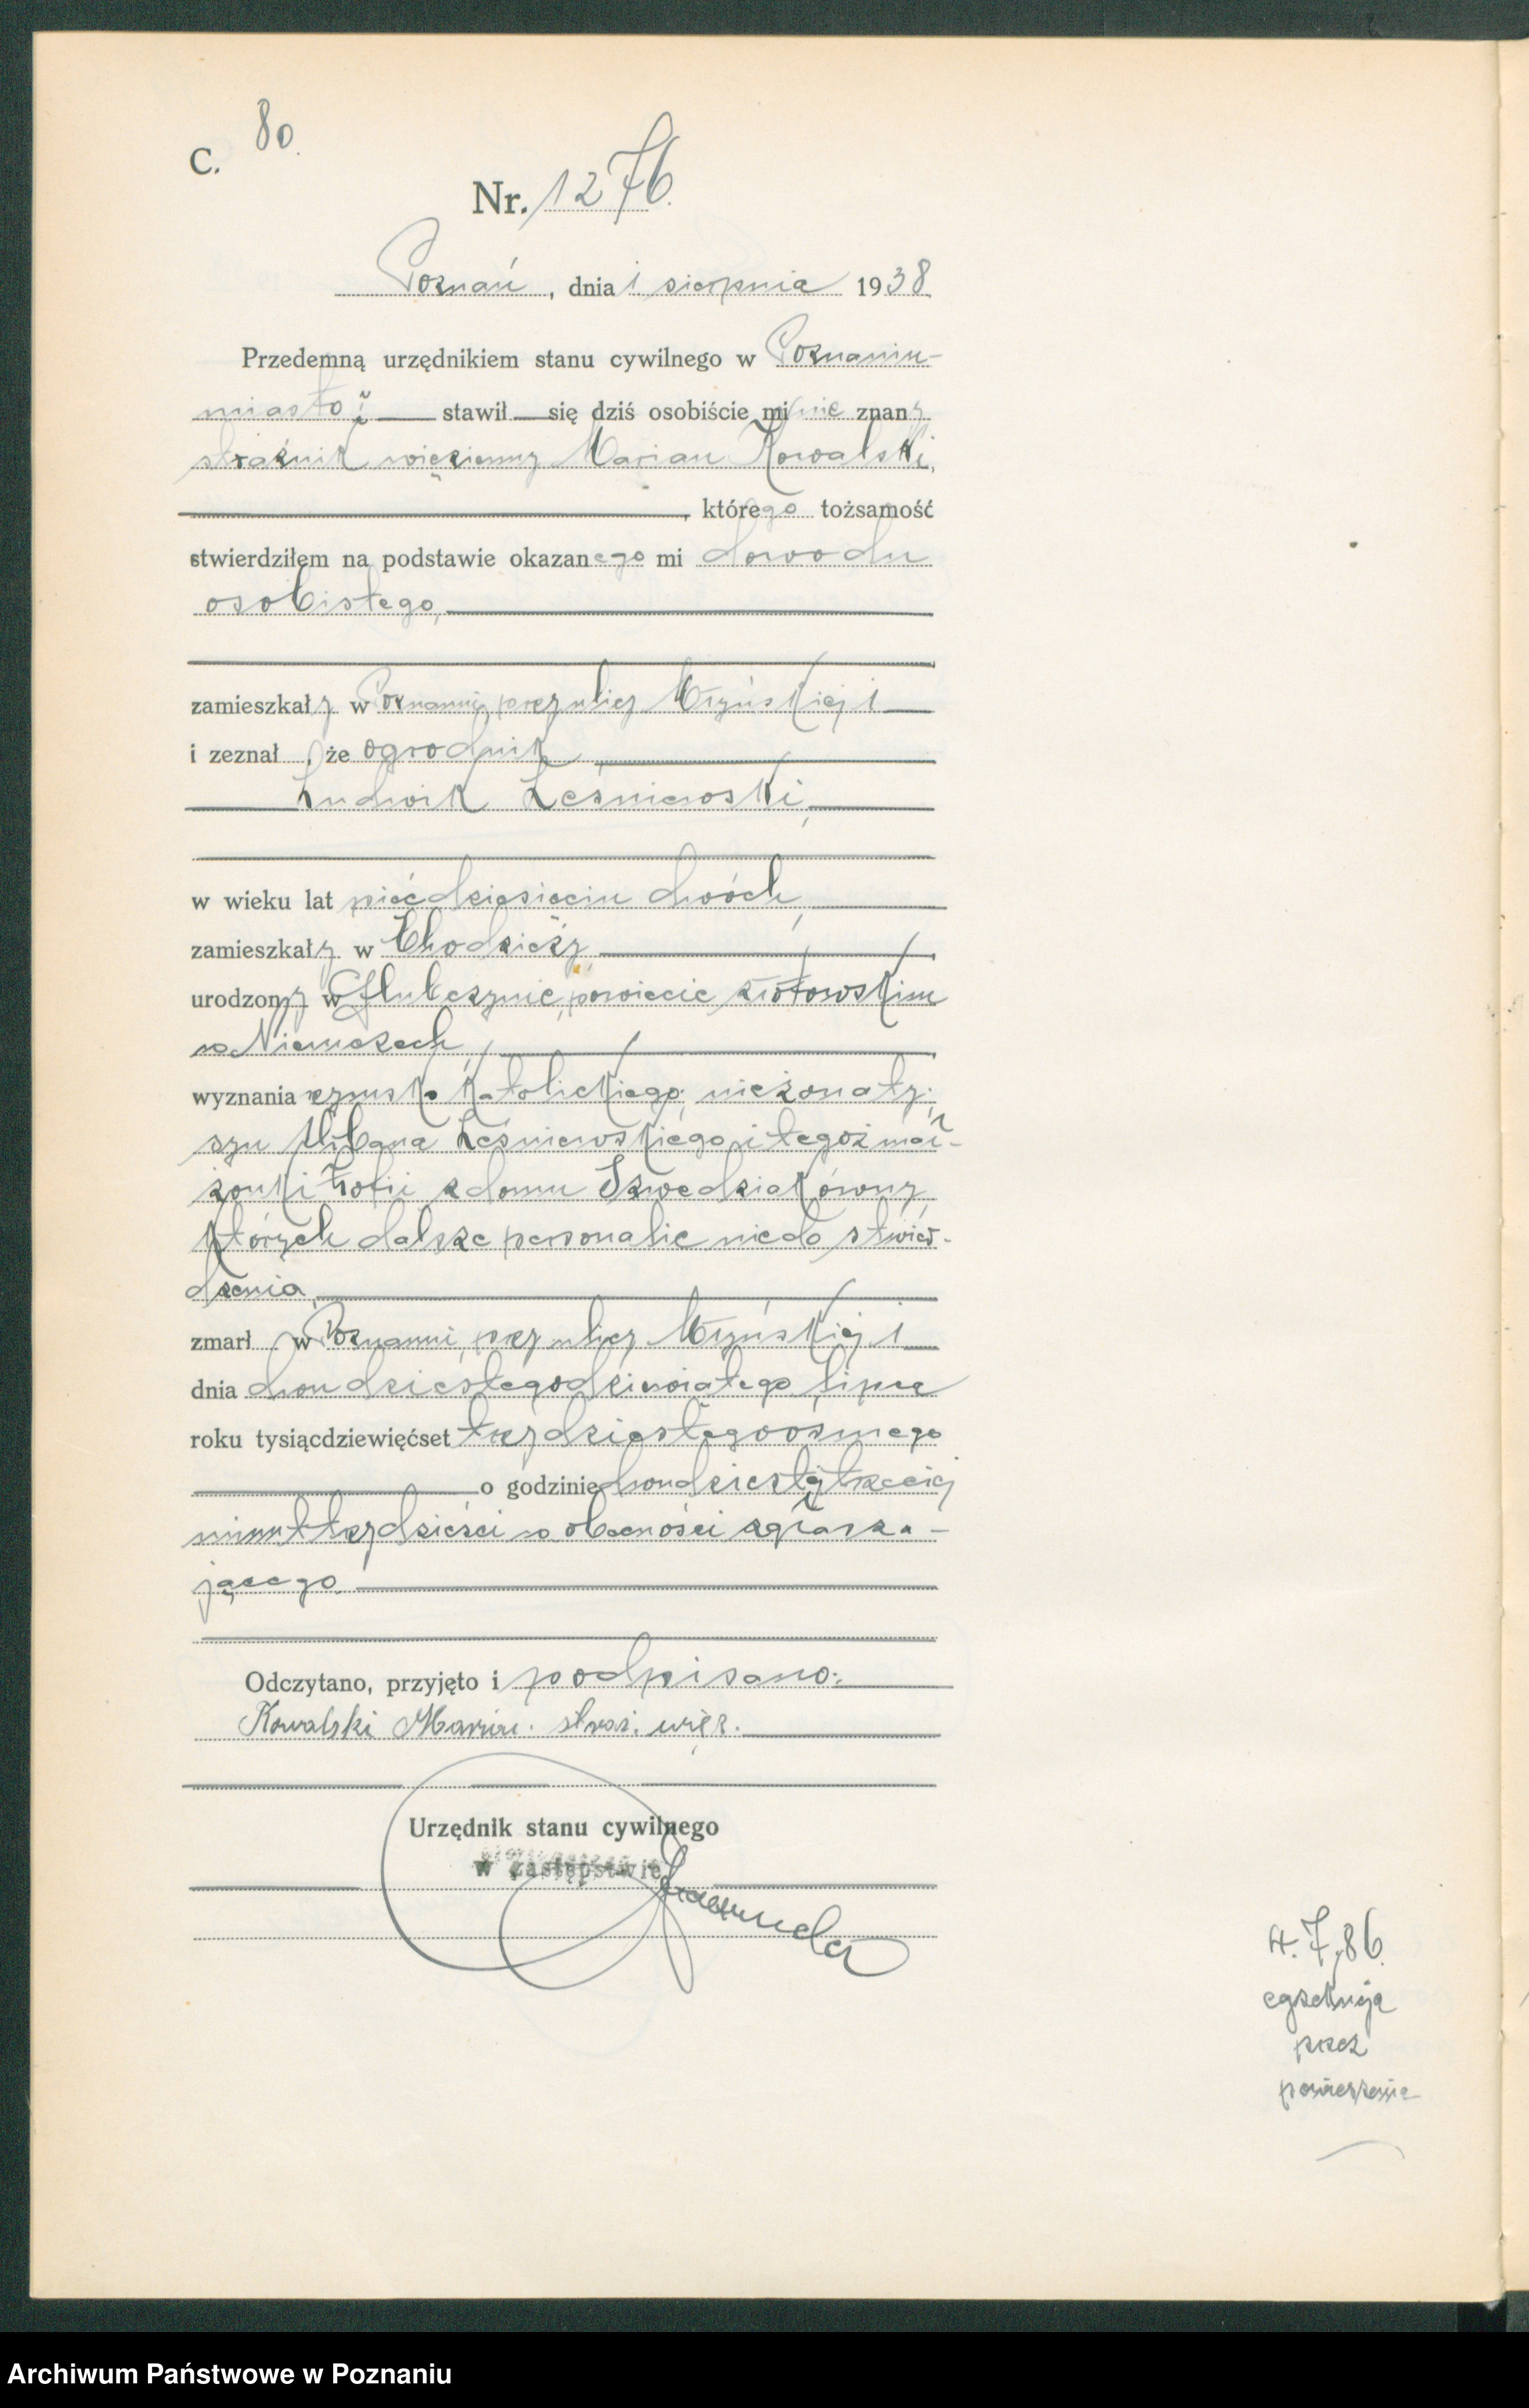 C. 80.
Nr. 1276.
Poznań, dnia 1 sierpnia 1938
Przedemną urzędnikiem stanu cywilnego w Poznaniu-
miasto; stawił się dziś osobiście mi nie znany
strażnik więzienny Marian Kowalski,
, którego tożsamość
stwierdziłem na podstawie okazanego mi dowodu
osobistego,
zamieszkały w Poznaniu, przy ulicy Młyńskiej 1
i zeznał, że ogrodnik
Ludwik Leśniewski,
w wieku lat pięćdziesięciu dwóch,
zamieszkały w Chodzieży,
urodzony w Głubczynie, powiecie złotowskim
w Niemczech,
wyznania rzymsko katolickiego, nieżonaty,
syn Urbana Leśniewskiego i tegoż mał-
żonki Zofii z domu Szwedziakówny,
których dalsze personalie niedo stwier-
dzenia,
zmarł w Poznaniu, przy ulicy Młyńskiej 1
dnia dwudziestegodziewiątego lipca
roku tysiącdziewięćset trzydziestegoósmego
o godzinie dwudziestejtrzeciej
minut trzydzieści w obecności zgłasza-
jącego.
Odczytano, przyjęto i podpisano:
Kowalski Marian. straż. więz.
Urzędnik stanu cywilnego
w zastępstwie
4.7.86.
egzekucja
przez
powieszenie
Archiwum Państwowe w Poznaniu